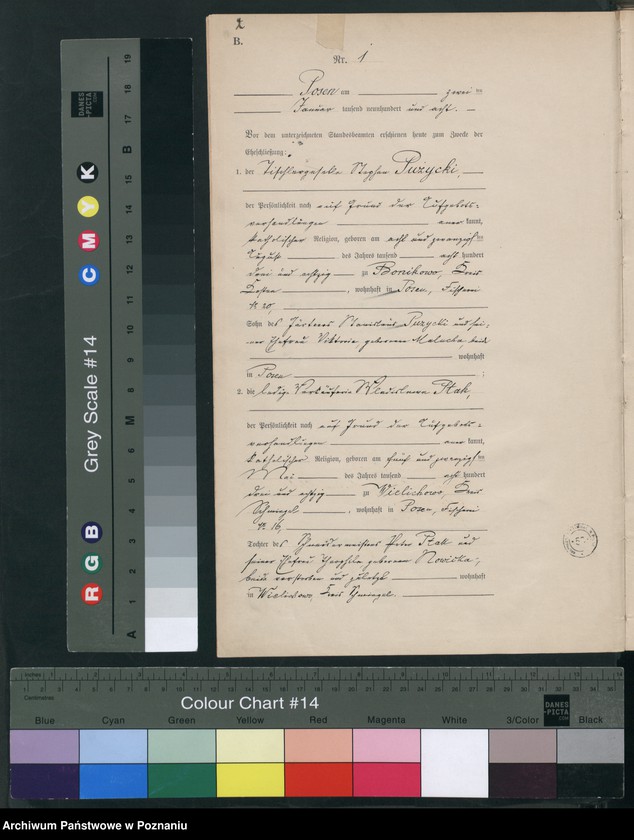 2
B.
Nr. 1
Posen am zwei ten
Januar tausend neunhundert und acht.
Vor dem unterzeichneten Standesbeamten erschienen heute zum Zwecke der
Eheschließung:
1. der Tischlergeselle Stephan Pużycki,
der Persönlichkeit nach auf Grund der Aufgebots-
verhandlungen aner kannt,
katholischer Religion, geboren am acht und zwanzigsten
August des Jahres tausend acht hundert
drei und achtzig zu Bonikowo, Kreis
Kosten, wohnhaft in Posen, Fischerei
№ 20,
Sohn des Gärtners Stanislaus Pużycki und sei-
ner Ehefrau Viktoria geborenen Malecka, beide
wohnhaft
in Posen ;
2. die ledige Verkäuferin Wladislawa Ptak,
der Persönlichkeit nach auf Grund der Aufgebots-
verhandlungen aner kannt,
katholischer Religion, geboren am fünf und zwanzigsten
Mai des Jahres tausend acht hundert
drei und achtzig zu Wielichowo, Kreis
Schmiegel, wohnhaft in Posen, Fischerei
№ 16,
Tochter des Schneidermeisters Peter Ptak und
seiner Ehefrau Theophila geborenen Nowicka,
beide verstorben und zuletzt wohnhaft
in Wielichowo, Kreis Schmiegel.
DANES
-PICTA
.COM
Grey Scale #14
R G B C M Y K
A 1 2 3 4 5 6 M 8 9 10 11 12 13 14 15 B 17 18 19
Inches 1 2 3 4 5 6 7 8 9 10 11 12 13 14
Centimetres 1 2 3 4 5 6 7 8 9 10 11 12 13 14 15 16 17 18 19 20 21 22 23 24 25 26 27 28 29 30 31 32 33 34 35
Colour Chart #14
DANES
-PICTA
.COM
Blue Cyan Green Yellow Red Magenta White 3/Color Black
Archiwum Państwowe w Poznaniu